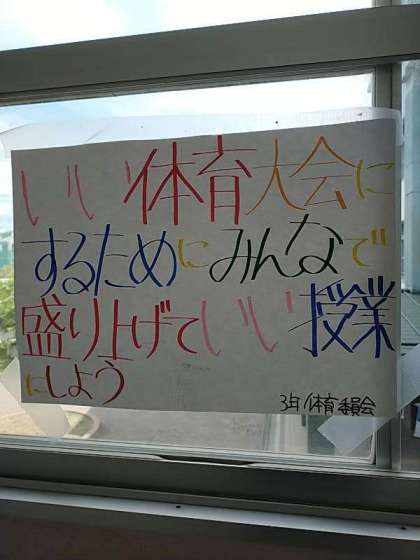 いい体育大会に
するためにみんなで
盛り上げていい授業
にしよう
3年体育委員会